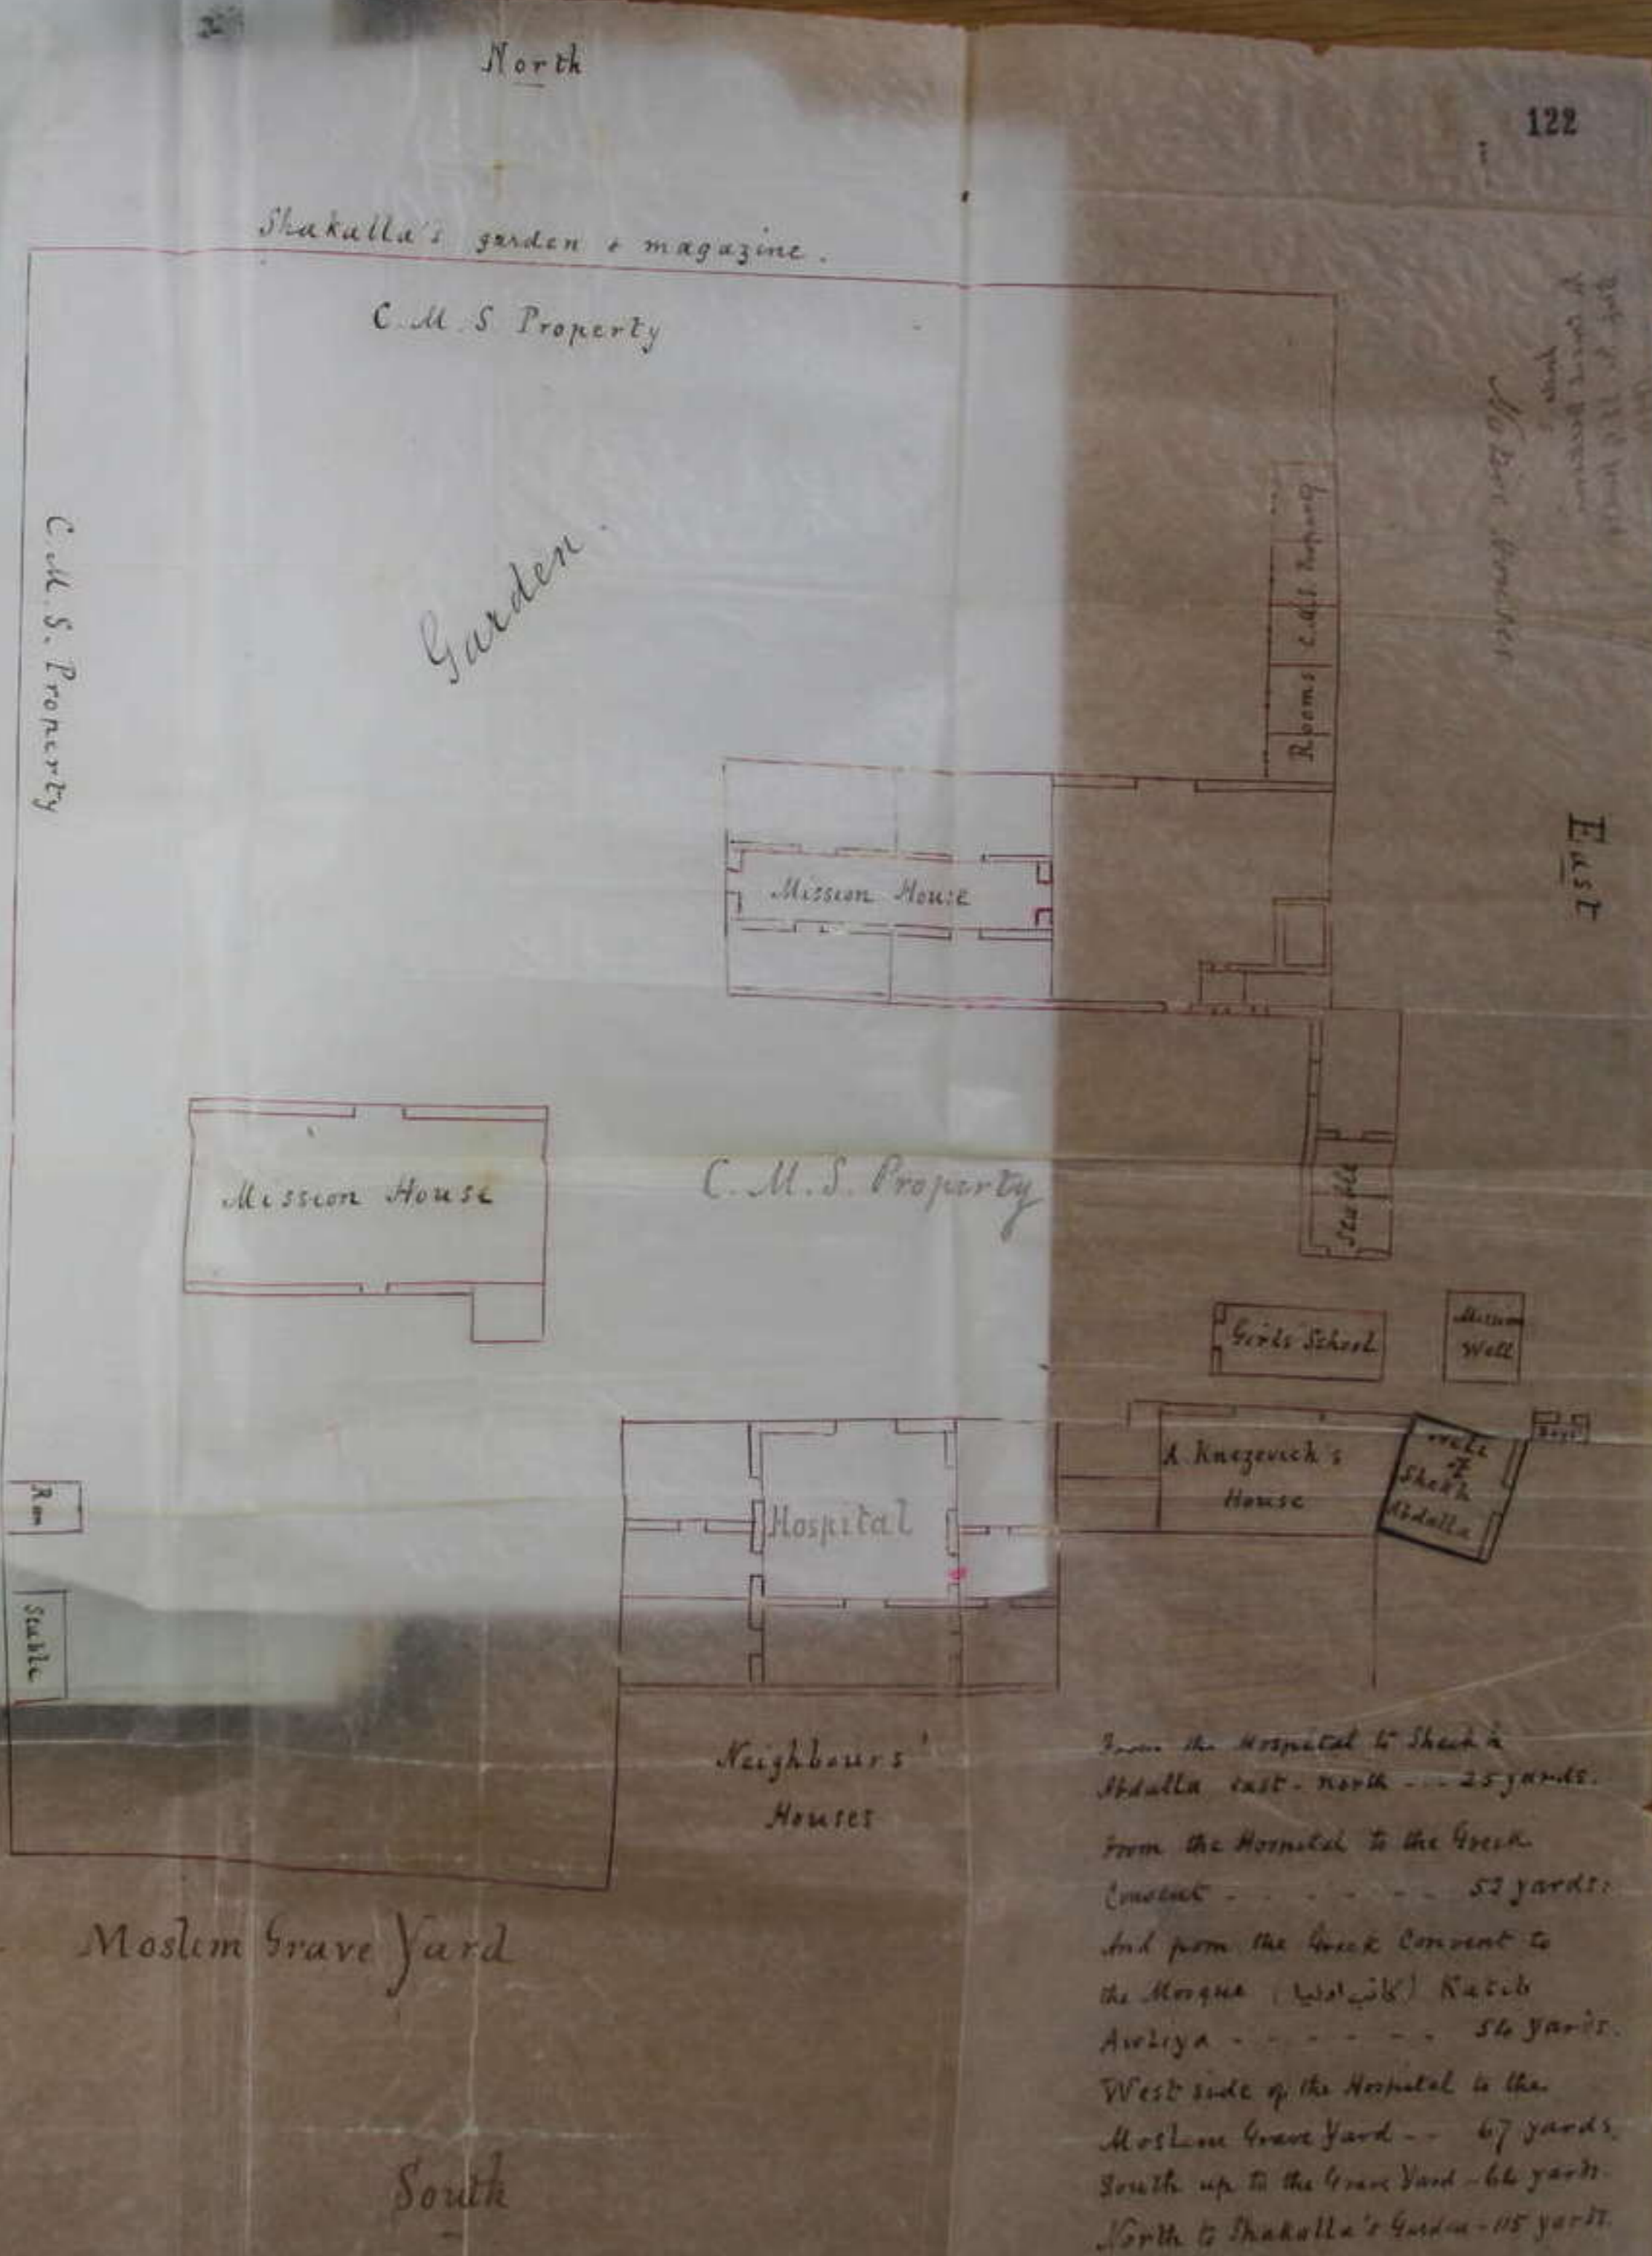 North
122
Shakalla's garden & magazine.
C. M. S Property
C. M. S. Property
Garden.
Rooms C.M.S. Property
Native Houses
East
Mission House
Mission House
C. M. S. Property
Stable
Girls' School
Mission
Well
A. Knezevich's
House
of
Sheik
Abdalla
Room
Stable
Hospital
Neighbours'
Houses
From the Hospital to Sheik
Abdulla east-north - - - 25 yards.
From the Hospital to the Greek
Convent - - - - - - - 52 yards.
And from the Greek Convent to
the Mosque Katib
Awliya - - - - - - yards.
West side of the Hospital to the
Moslem Grave Yard - - 67 yards.
South up to the Grave Yard - yards.
North to Shakalla's Garden - 115 yards.
Moslem Grave Yard
South